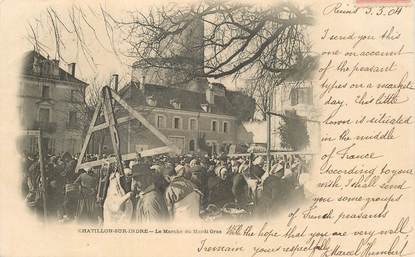 Reims 3.3.04
I send you this
one on account
of the peasant
types on a market
day. This little
town is situated
in the middle
of France
According to your
wish I shall send
you some groups
of French peasants
CHATILLON-SUR-INDRE - Le Marché du Mardi Gras
With the hope that you are very well
I remain yours respectfully
Marcel Humbert